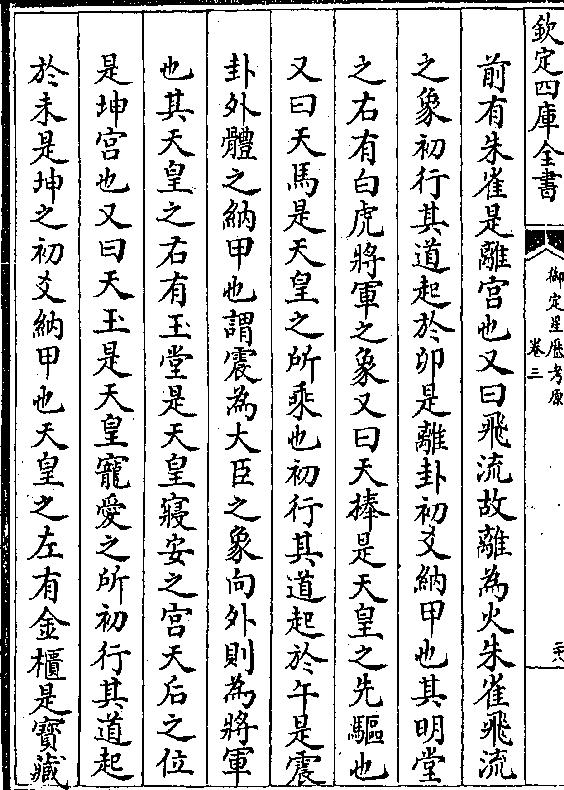 欽定四庫全書
御定星歷考原
卷三
二十八
前有朱雀是離宮也又曰飛流故離為火朱雀飛流
之象初行其道起於卯是離卦初爻納甲也其明堂
之右有白虎將軍之象又曰天捧是天皇之先驅也
又曰天馬是天皇之所乘也初行其道起於午是震
卦外體之納甲也謂震為大臣之象向外則為將軍
也其天皇之右有玉堂是天皇寢安之宮天后之位
是坤宮也又曰天玉是天皇寵愛之所初行其道起
於未是坤之初爻納甲也天皇之左有金櫃是寶藏